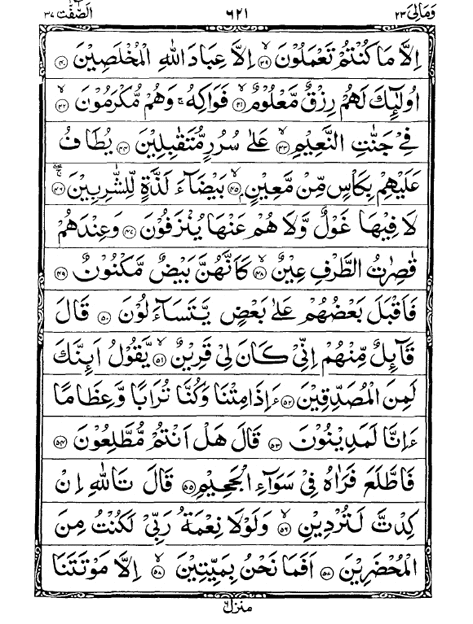 وَمَالِیَ ٢٣ ٦٢١ اَلصّٰٓفّٰت ٣٧
اِلَّا مَا كُنْتُمْ تَعْمَلُوْنَ ﴿٣٩﴾ اِلَّا عِبَادَ اللّٰهِ الْمُخْلَصِيْنَ ﴿٤٠﴾
اُولٰٓئِكَ لَهُمْ رِزْقٌ مَّعْلُوْمٌ ﴿٤١﴾ فَوَاكِهُ ۚ وَهُمْ مُّكْرَمُوْنَ ﴿٤٢﴾
فِیْ جَنّٰتِ النَّعِيْمِ ﴿٤٣﴾ عَلٰی سُرُرٍ مُّتَقٰبِلِيْنَ ﴿٤٤﴾ يُطَافُ
عَلَيْهِمْ بِكَاْسٍ مِّنْ مَّعِيْنٍ ﴿٤٥﴾ بَيْضَآءَ لَذَّةٍ لِّلشّٰرِبِيْنَ ﴿٤٦﴾
لَا فِيْهَا غَوْلٌ وَّلَا هُمْ عَنْهَا يُنْزَفُوْنَ ﴿٤٧﴾ وَعِنْدَهُمْ
قٰصِرٰتُ الطَّرْفِ عِيْنٌ ﴿٤٨﴾ كَاَنَّهُنَّ بَيْضٌ مَّكْنُوْنٌ ﴿٤٩﴾
فَاَقْبَلَ بَعْضُهُمْ عَلٰی بَعْضٍ يَّتَسَآءَلُوْنَ ﴿٥٠﴾ قَالَ
قَآئِلٌ مِّنْهُمْ اِنِّیْ كَانَ لِیْ قَرِيْنٌ ﴿٥١﴾ يَّقُوْلُ اَئِنَّكَ
لَمِنَ الْمُصَدِّقِيْنَ ﴿٥٢﴾ ءَاِذَا مِتْنَا وَكُنَّا تُرَابًا وَّعِظَامًا
ءَاِنَّا لَمَدِيْنُوْنَ ﴿٥٣﴾ قَالَ هَلْ اَنْتُمْ مُّطَّلِعُوْنَ ﴿٥٤﴾
فَاطَّلَعَ فَرَاٰهُ فِیْ سَوَآءِ الْجَحِيْمِ ﴿٥٥﴾ قَالَ تَاللّٰهِ اِنْ
كِدْتَّ لَتُرْدِيْنِ ﴿٥٦﴾ وَلَوْلَا نِعْمَةُ رَبِّیْ لَكُنْتُ مِنَ
الْمُحْضَرِيْنَ ﴿٥٧﴾ اَفَمَا نَحْنُ بِمَيِّتِيْنَ ﴿٥٨﴾ اِلَّا مَوْتَتَنَا
منزل ٦